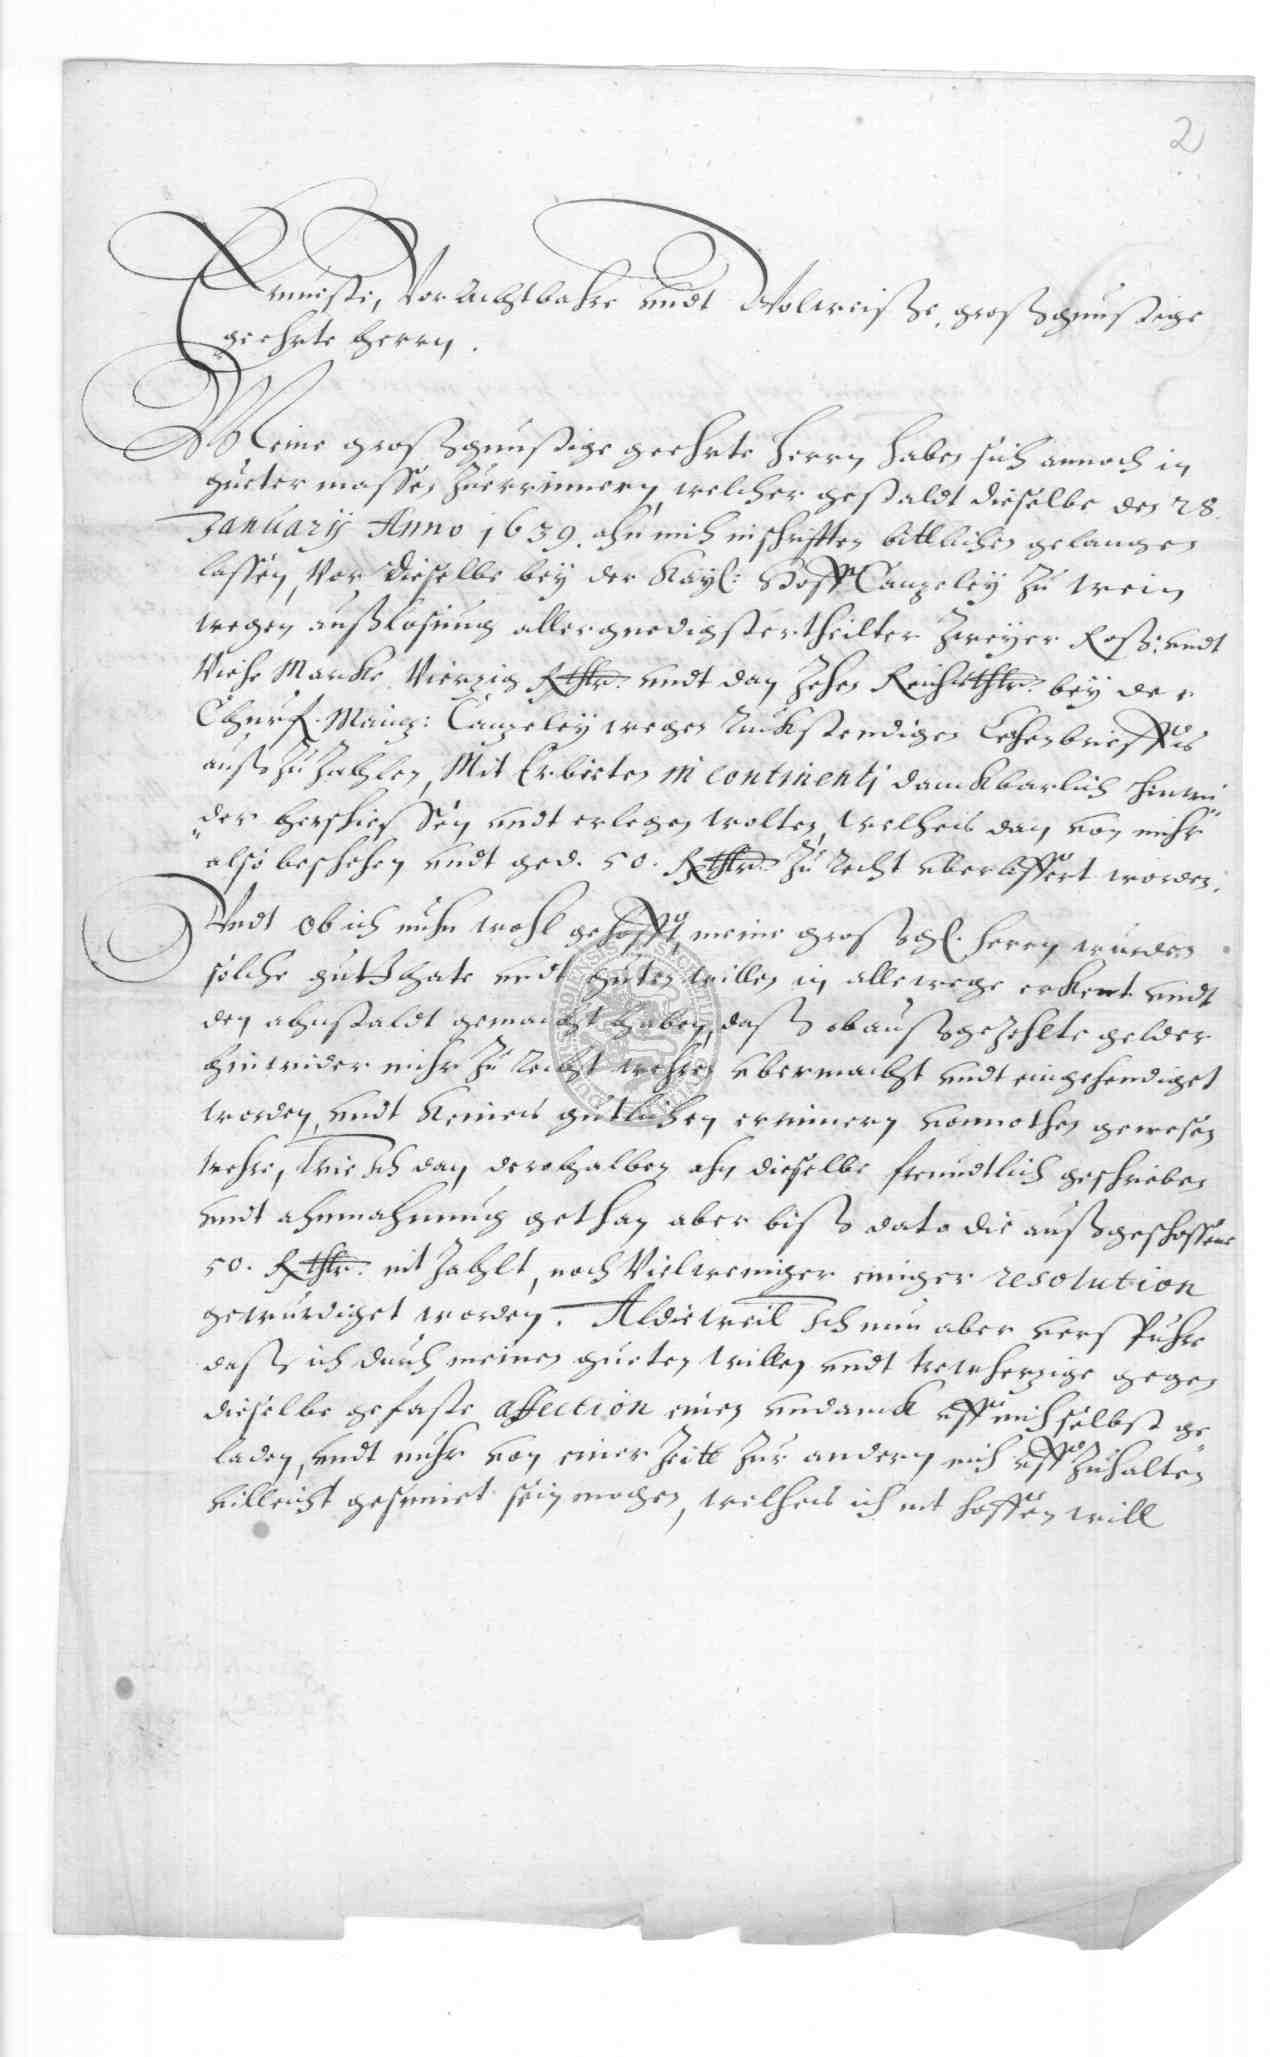 2
Ernveste, Vorachtbahre undt Wolweise, großgunstige
geehrte herrn.
Meine großgunstige geehrte Herrn haben sich annoch in
gueter massen zuerinnern, welcher gestaldt dieselbe den 28.
January Anno 1639. ahn mich in schrifften bittlichen gelangen
lassen, Vor dieselbe bey der Kayl: Hoff Canzeley zu Wein
wegen außlosung allergnedigst ertheilter Zweyer Roß: undt
Viehe Marckt Vierzig Rthlr. undt dan Zehen Reichsthlr. bey der
Churf. Mainz: Canzeley wegen Ruckstendigen Lehenbrieffs
auß zu zahlen, Mit Erbieten in continenti danckbarlich hinwi
der herschiessen undt erlegen wolten, welches dan von mihr
also beschehen undt ged. 50. Rthlr. zu Recht uberliffert worden.
Undt ob ich nuhn wohl gehofft, meine großgl. herrn wurden
solche gutthate undt guten willen in allewege erkent undt
den ahnstaldt gemacht haben, daß obaußgezehlte gelder
hinwider mihr zu Recht wehren ubermacht undt eingehendiget
worden, undt keines gutlichen erinnern vonnothen gewesen
wehre, Wie ich dan derohalben ahn dieselbe freundtlich geschrieben
undt ahnmahnung gethan aber biß dato die außgeschossene
50. Rthlr. nit zahlt, noch Vielweniger einiger resolution
gewurdiget worden. Aldieweil Ich nun aber verspuhre
daß ich durch meinen gueten willen undt trewherzige gegen
dieselbe gefaste affection einen undanck uff mich selbst ge
laden, undt mihr von einer Zeitt zur andern mich uff zuhalten
villeicht gesinnet sein mogen, welches ich nit hoffen will